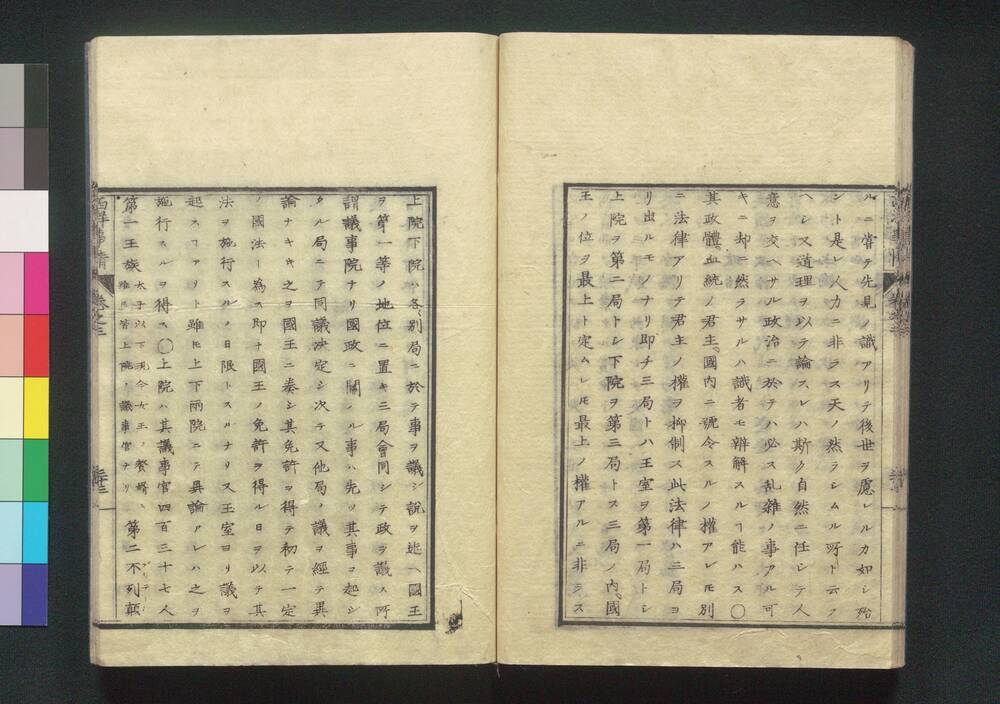 ルニ嘗テ先見ノ識アリテ後世ヲ慮レルカ如シ殆
ント是レ人力ニ非ラス天ノ然ラシムル所ト云フ
ヘシ又道理ヲ以テ論スレハ斯ク自然ニ任シテ人
意ヲ交ヘサル政治ニ於テハ必ス乱雑ノ事アル可
キニ却テ然ラサルハ識者モ辨解スルヿ能ハス〇
其政體血統ノ君主國内ニ號令スルノ權アレモ別
ニ法律アリテ君主ノ權ヲ抑制ス此法律ハ三局ヨ
リ出ルモノナリ即チ三局トハ王室ヲ第一局トシ
上院ヲ第二局トシ下院ヲ第三局トス三局ノ内國
王ノ位ヲ最上ト定ムレモ最上ノ權アルニ非ラス
上院下院ハ各別局ニ於テ事ヲ議シ説ヲ述ヘ國王
ヲ第一等ノ地位ニ置キ三局會同シテ政ヲ議ス所
謂議事院ナリ國政ニ關ハル事ハ先ツ其事ヲ起シ
タル局ニテ同議決定シ次テ又他局ノ議ヲ經テ異
論ナキキ之ヲ國王ニ奏シ其免許ヲ得テ初テ一定
ノ國法ト為ス即チ國王ノ免許ヲ得ル日ヲ以テ其
法ヲ施行スルノ日限トスルナリ又王室ヨリ議ヲ
起スコアリト雖モ上下兩院ニテ異論アレハ之ヲ
施行スルヿヲ得ス〇上院ハ其議事官四百三十七人
第一王族太子以下現今女王ノ
皆上院ノ議事官ナリ第二不列顛
西洋事情 巻之三